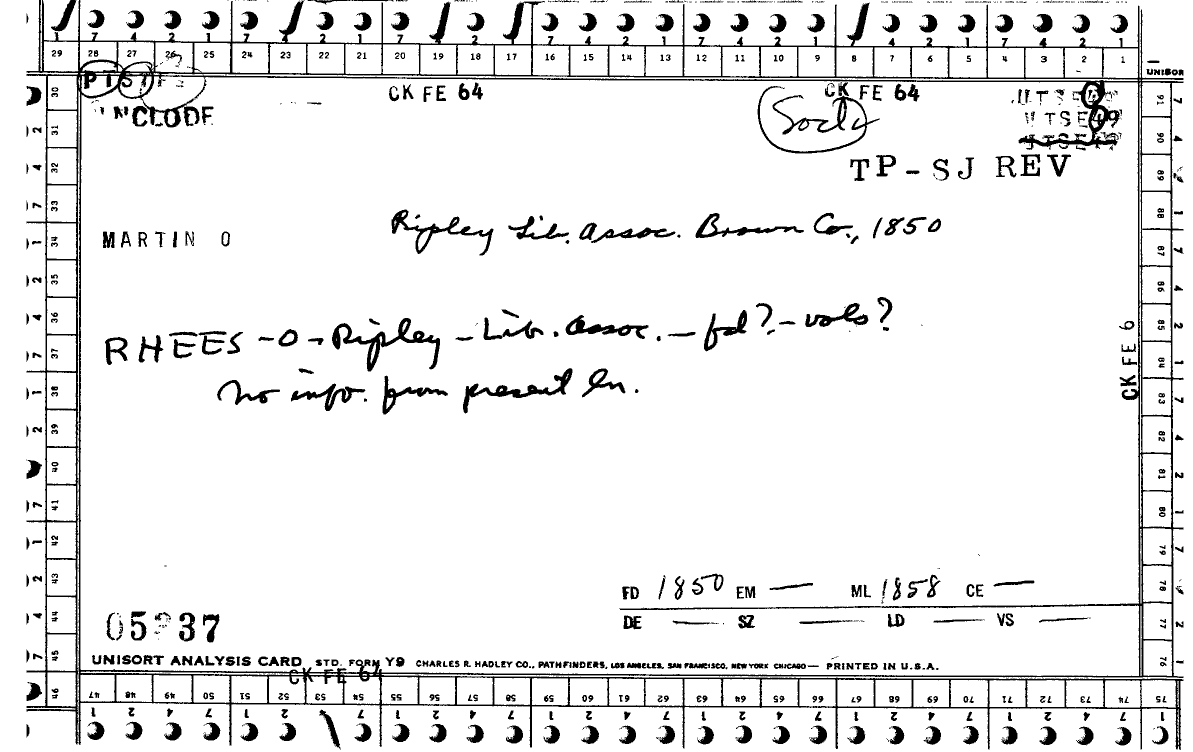 7 4 2 1 7 4 2 1 7 4 2 1 7 4 2 1 7 4 2 1 7 4 2 1 7 4 2 1
29 28 27 26 25 24 23 22 21 20 19 18 17 16 15 14 13 12 11 10 9 8 7 6 5 4 3 2 1
UNISOR
CK FE 64
CK FE 64
Socly
TSE49
TP-SJ REV
MARTIN O
Ripley Lib. Assoc. Brown Co., 1850
RHEES - O - Ripley - Lib. Assoc. - fd? - vols?
no info. from present ln.
CK FE 6
FD 1850 EM — ML 1858 CE —
DE — SZ — LD — VS —
UNISORT ANALYSIS CARD STD. FORM Y9 CHARLES R. HADLEY CO., PATHFINDERS, LOS ANGELES, SAN FRANCISCO, NEW YORK CHICAGO — PRINTED IN U.S.A.
CK FE 64
47 48 49 50 51 52 53 54 55 56 57 58 59 60 61 62 63 64 65 66 67 68 69 70 71 72 73 74 75
1 2 4 7 1 2 4 7 1 2 4 7 1 2 4 7 1 2 4 7 1 2 4 7 1 2 4 7